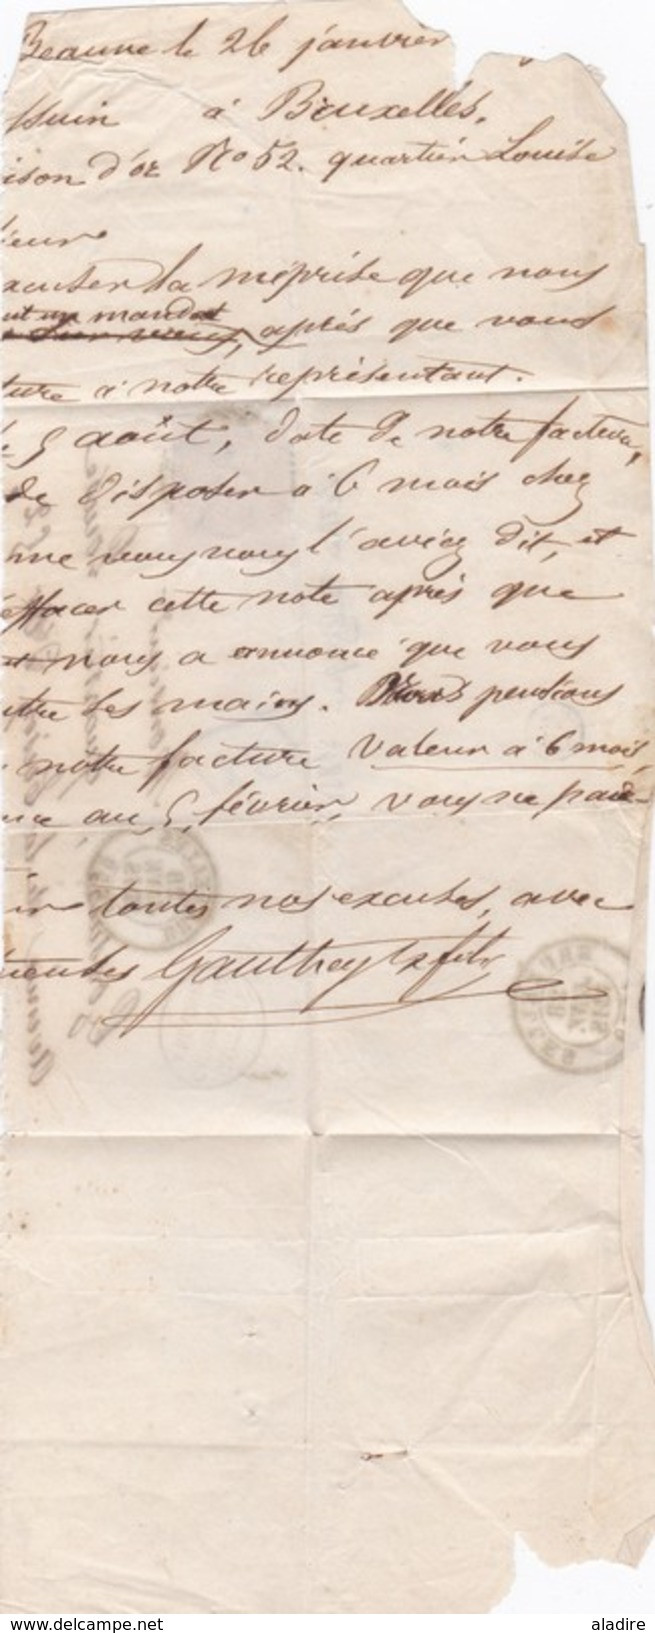 Beaune le 26 janvier
ssuin à Bruxelles,
ison d'or No 52. quartier Louise
ieur
xcuser la méprise que nous
ut un mandat
sur vous, après que vous
ture à notre représentant.
5 août, date de notre facture,
de disposer à 6 mois chez
me vous nous l'aviez dit, et
effacer cette note après que
et nous a annoncé que vous
ntre ses mains. pensions
notre facture valeur à 6 mois,
nce au 5 février, vous ne
ir toutes nos excuses, avec
Gauthey & fils
delcampe.net
aladire